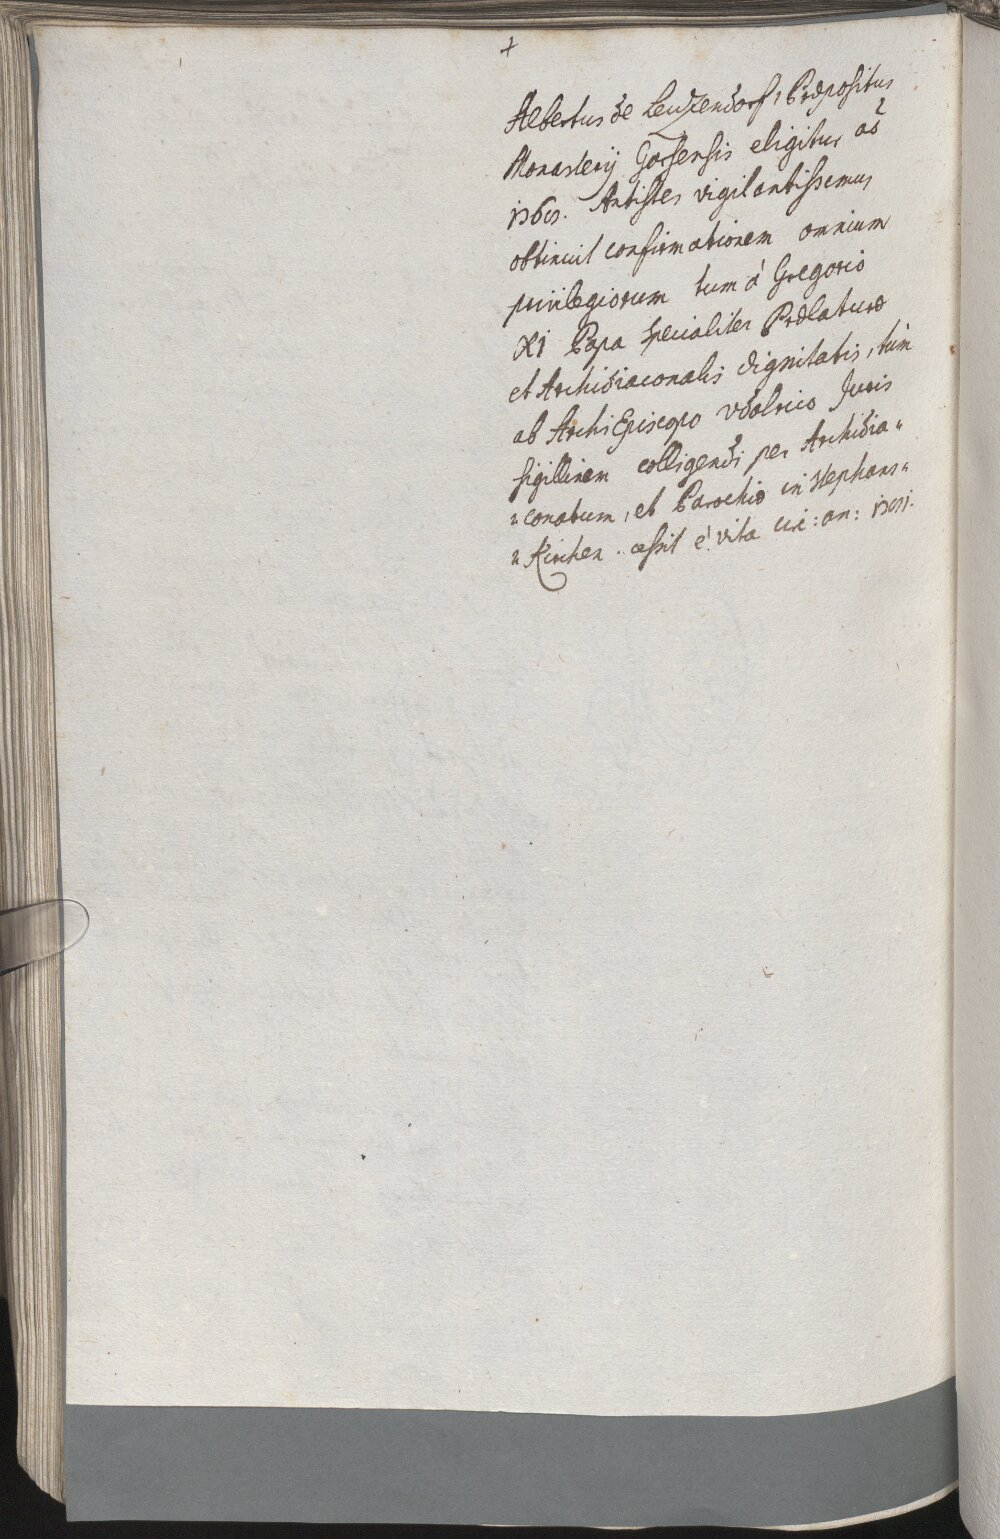 +
Albertus de Leuzendorf, Præpositus
Monasterij Garsensis eligitur aõ
Antistes vigilantissimus
obtinuit confirmationem omnium
privilegiorum tum à Gregorio
XI Papa specialiter Prælaturæ
et Archidiaconalis dignitatis, tùm
ab ArchiEpiscopo Vdalrico Juris
colligendi per Archidia=
=conatum, et Parochiâ in Stephans=
=Kirchen. cessit è vita cir: an: